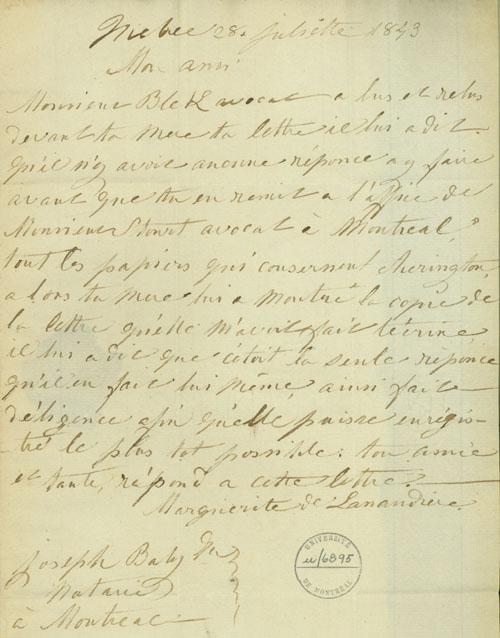 Quebec 28 juillette 1843
Mon ami
Monsieur Black avocat a lus et relus
devant ta mere ta lettre il lui a dit
qu'il n'y avoit aucune réponce a y faire
avant que tu en remit a l'office de
Monsieur Stuart avocat à Montreal
tout les papiers qui consernent Cherington,
a lors ta mere lui a montré la copie de
la lettre qu'elle m'avoit fait t'écrire,
il lui a dit que c'étoit la seule réponce
qu'il en fait lui même, ainsi fait
déligence afin qu'elle puisse enrégis-
tré le plus tot possible. ton amie
et tante, répond a cette lettre.
Marguerite de Lanaudière.
Joseph Baby
Notaire
à Montreal
UNIVERSITÉ
u/6895
DE MONTRÉAL